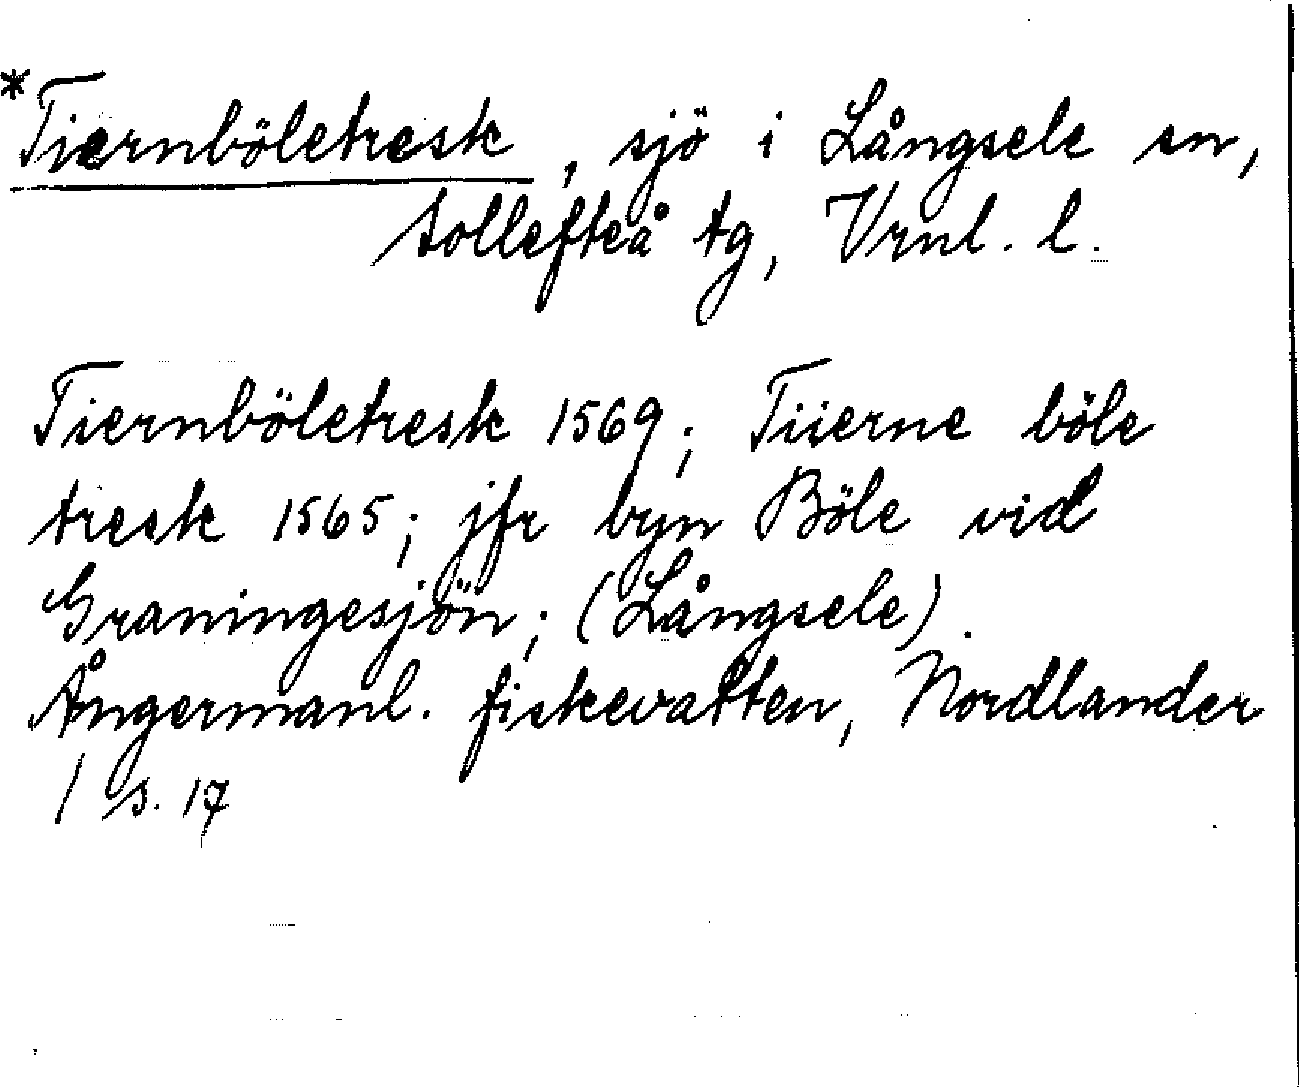 *Tiernböletresk, sjö i Långsele sn,
Sollefteå tg, Vrnl. l.
Tiernböletresk 1569; Tiierne böle
tresk 1565; jfr byn Böle vid
Graningesjön; (Långsele).
Ångermanl. fiskevatten, Nordlander
1 s. 17